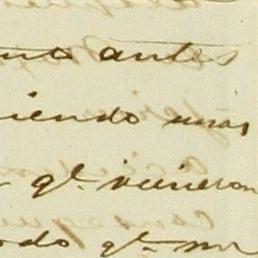 mo antes
iendo unas
qe. vinieron
odo qe. me